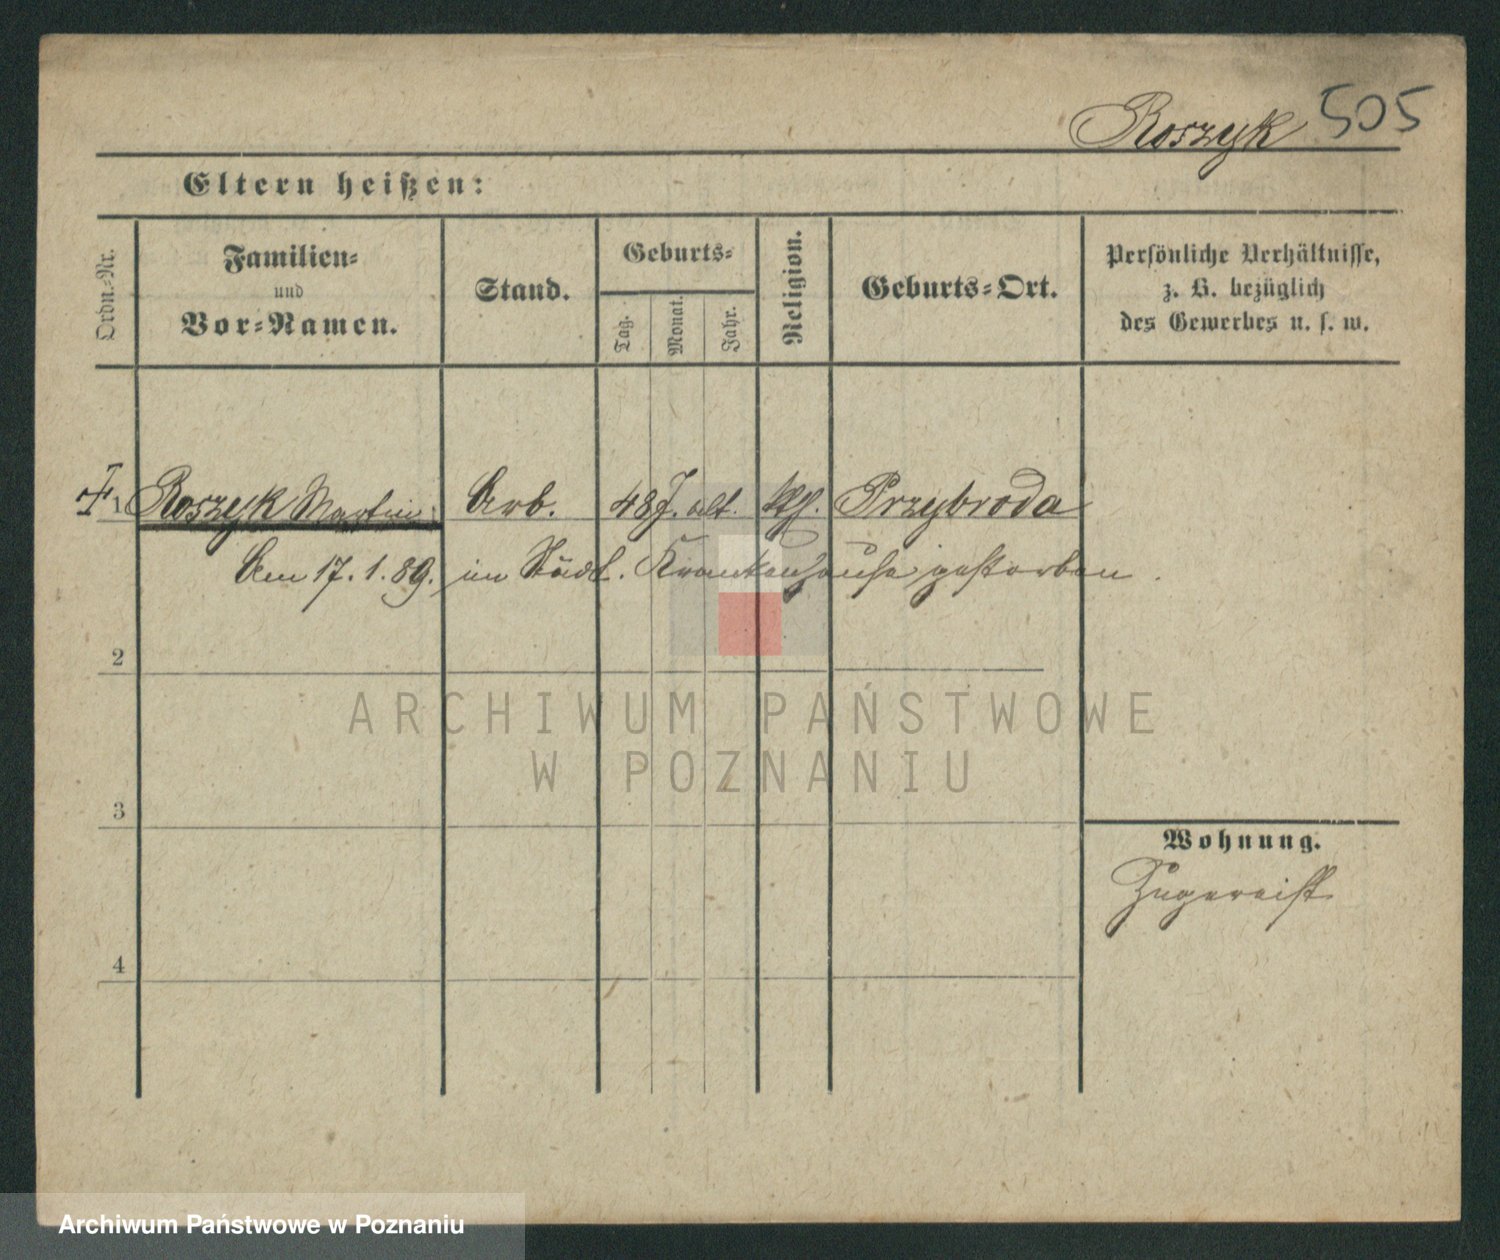 Roszyk 505
Eltern heißen:
Ordn.-Nr.
Familien-
und
Vor-Namen.
Stand.
Geburts-
Tag.
Monat.
Jahr.
Religion.
Geburts-Ort.
Persönliche Verhältnisse,
z. B. bezüglich
des Gewerbes u. s. w.
1 Roszyk Martin Arb. 48 J. alt. kth. Przybroda
Am 17.1.89. im Städt. Krankenhause gestorben.
2
3
4
Wohnung.
Zugereist
ARCHIWUM PAŃSTWOWE
W POZNANIU
Archiwum Państwowe w Poznaniu